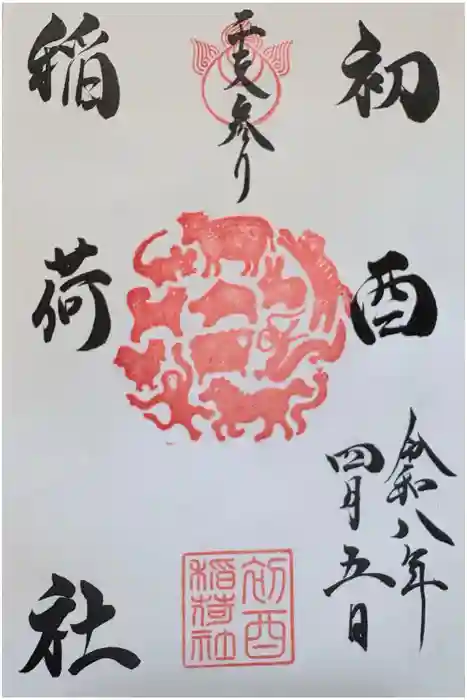 初酉
令和八年
四月五日
干支参り
稲荷社
初酉
稲荷社